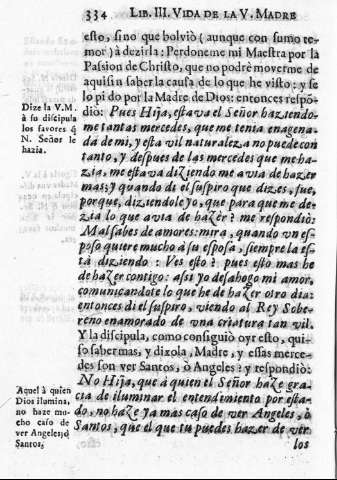 334 LIB. III. VIDA DE LA V. MADRE
esto, sino que bolviò (aunque con sumo te-
mor) à dezirla: Perdoneme mi Maestra por la
Passion de Christo, que no podrè moverme de
aqui sin saber la causa de lo que he visto; y se
lo pido por la Madre de Dios: entonces respõ-
diò: Pues Hija, estava el Señor haziendo-
me tantas mercedes, que me tenia enagena
da de mi, y esta vil naturaleza no puede con
tanto, y despues de las mercedes que me ha-
zia, me estava diziendo me avia de hazer
mas; y quando di el suspiro que dizes, fue,
porque, diziendole yo, que para que me de-
zia lo que avia de hazer? me respondiò:
Mal sabes de amores: mira, quando vn es-
poso quiere mucho à su esposa, siempre la es-
tà diziendo: Ves esto? pues esto mas he
de hazer contigo: assi yo desahogo mi amor,
comunicandote lo que he de hazer otro dia:
entonces di el suspiro, viendo al Rey Sobe-
rano enamorado de vna criatura tan vil.
Y la discipula, como consiguiò oyr esto, qui-
so saber mas, y dixola, Madre, y essas merce-
des son ver Santos, ò Angeles? y respondiò:
No Hija, que à quien el Señor haze gra-
cia de iluminar el entendimiento por esta-
do, no haze ya mas caso de ver Angeles, ò
Santos, que el que tu puedes hazer de ver
los
Dize la V. M.
à su discipula
los favores q̃
N. Señor le
hazia.
Aquel à quien
Dios ilumina,
no haze mu-
cho caso de
ver Angeles, ò
Santos,